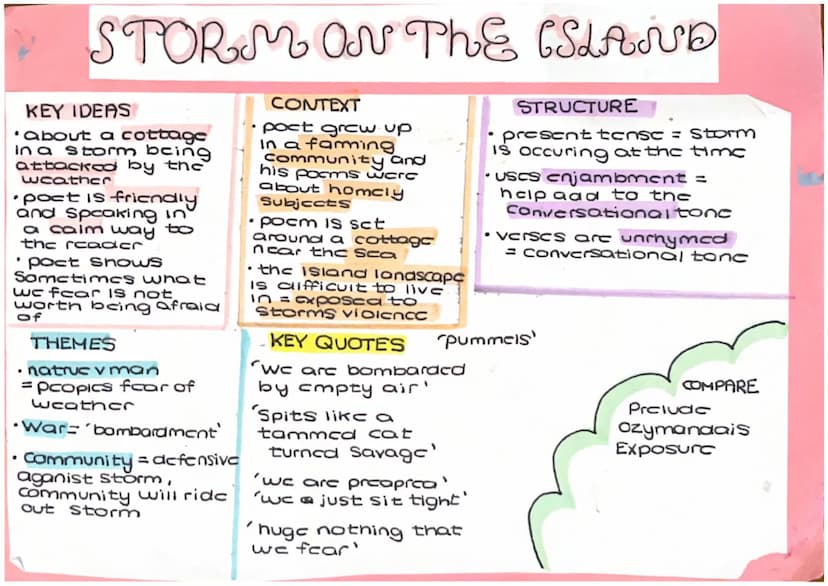 STORM ON THE ISLAND
KEY IDEAS
• about a cottage
in a storm being
attacked by the
weather
• poet is friendly
and speaking in
a calm way to
the reader
• poet shows
sometimes what
we fear is not
worth being afraid
of
CONTEXT
• poet grew up
in a farming
community and
his poems were
about homely
subjects
• poem is set
around a cottage
near the sea
• the island landscape
is difficult to live
in = exposed to
storms violence
STRUCTURE
• present tense = storm
is occuring at the time
• uses enjambment =
help add to the
conversational tone
• verses are unrhymed
= conversational tone
THEMES
• natrue v man
= peoples fear of
weather
• War = 'bombardment'
• Community = defensive
aganist storm,
community will ride
out storm
KEY QUOTES 'pummels'
'we are bombarded
by empty air'
'Spits like a
tammed cat
turned Savage'
'we are preapred'
'we just sit tight'
'huge nothing that
we fear'
COMPARE
Prelude
Ozymandais
Exposure